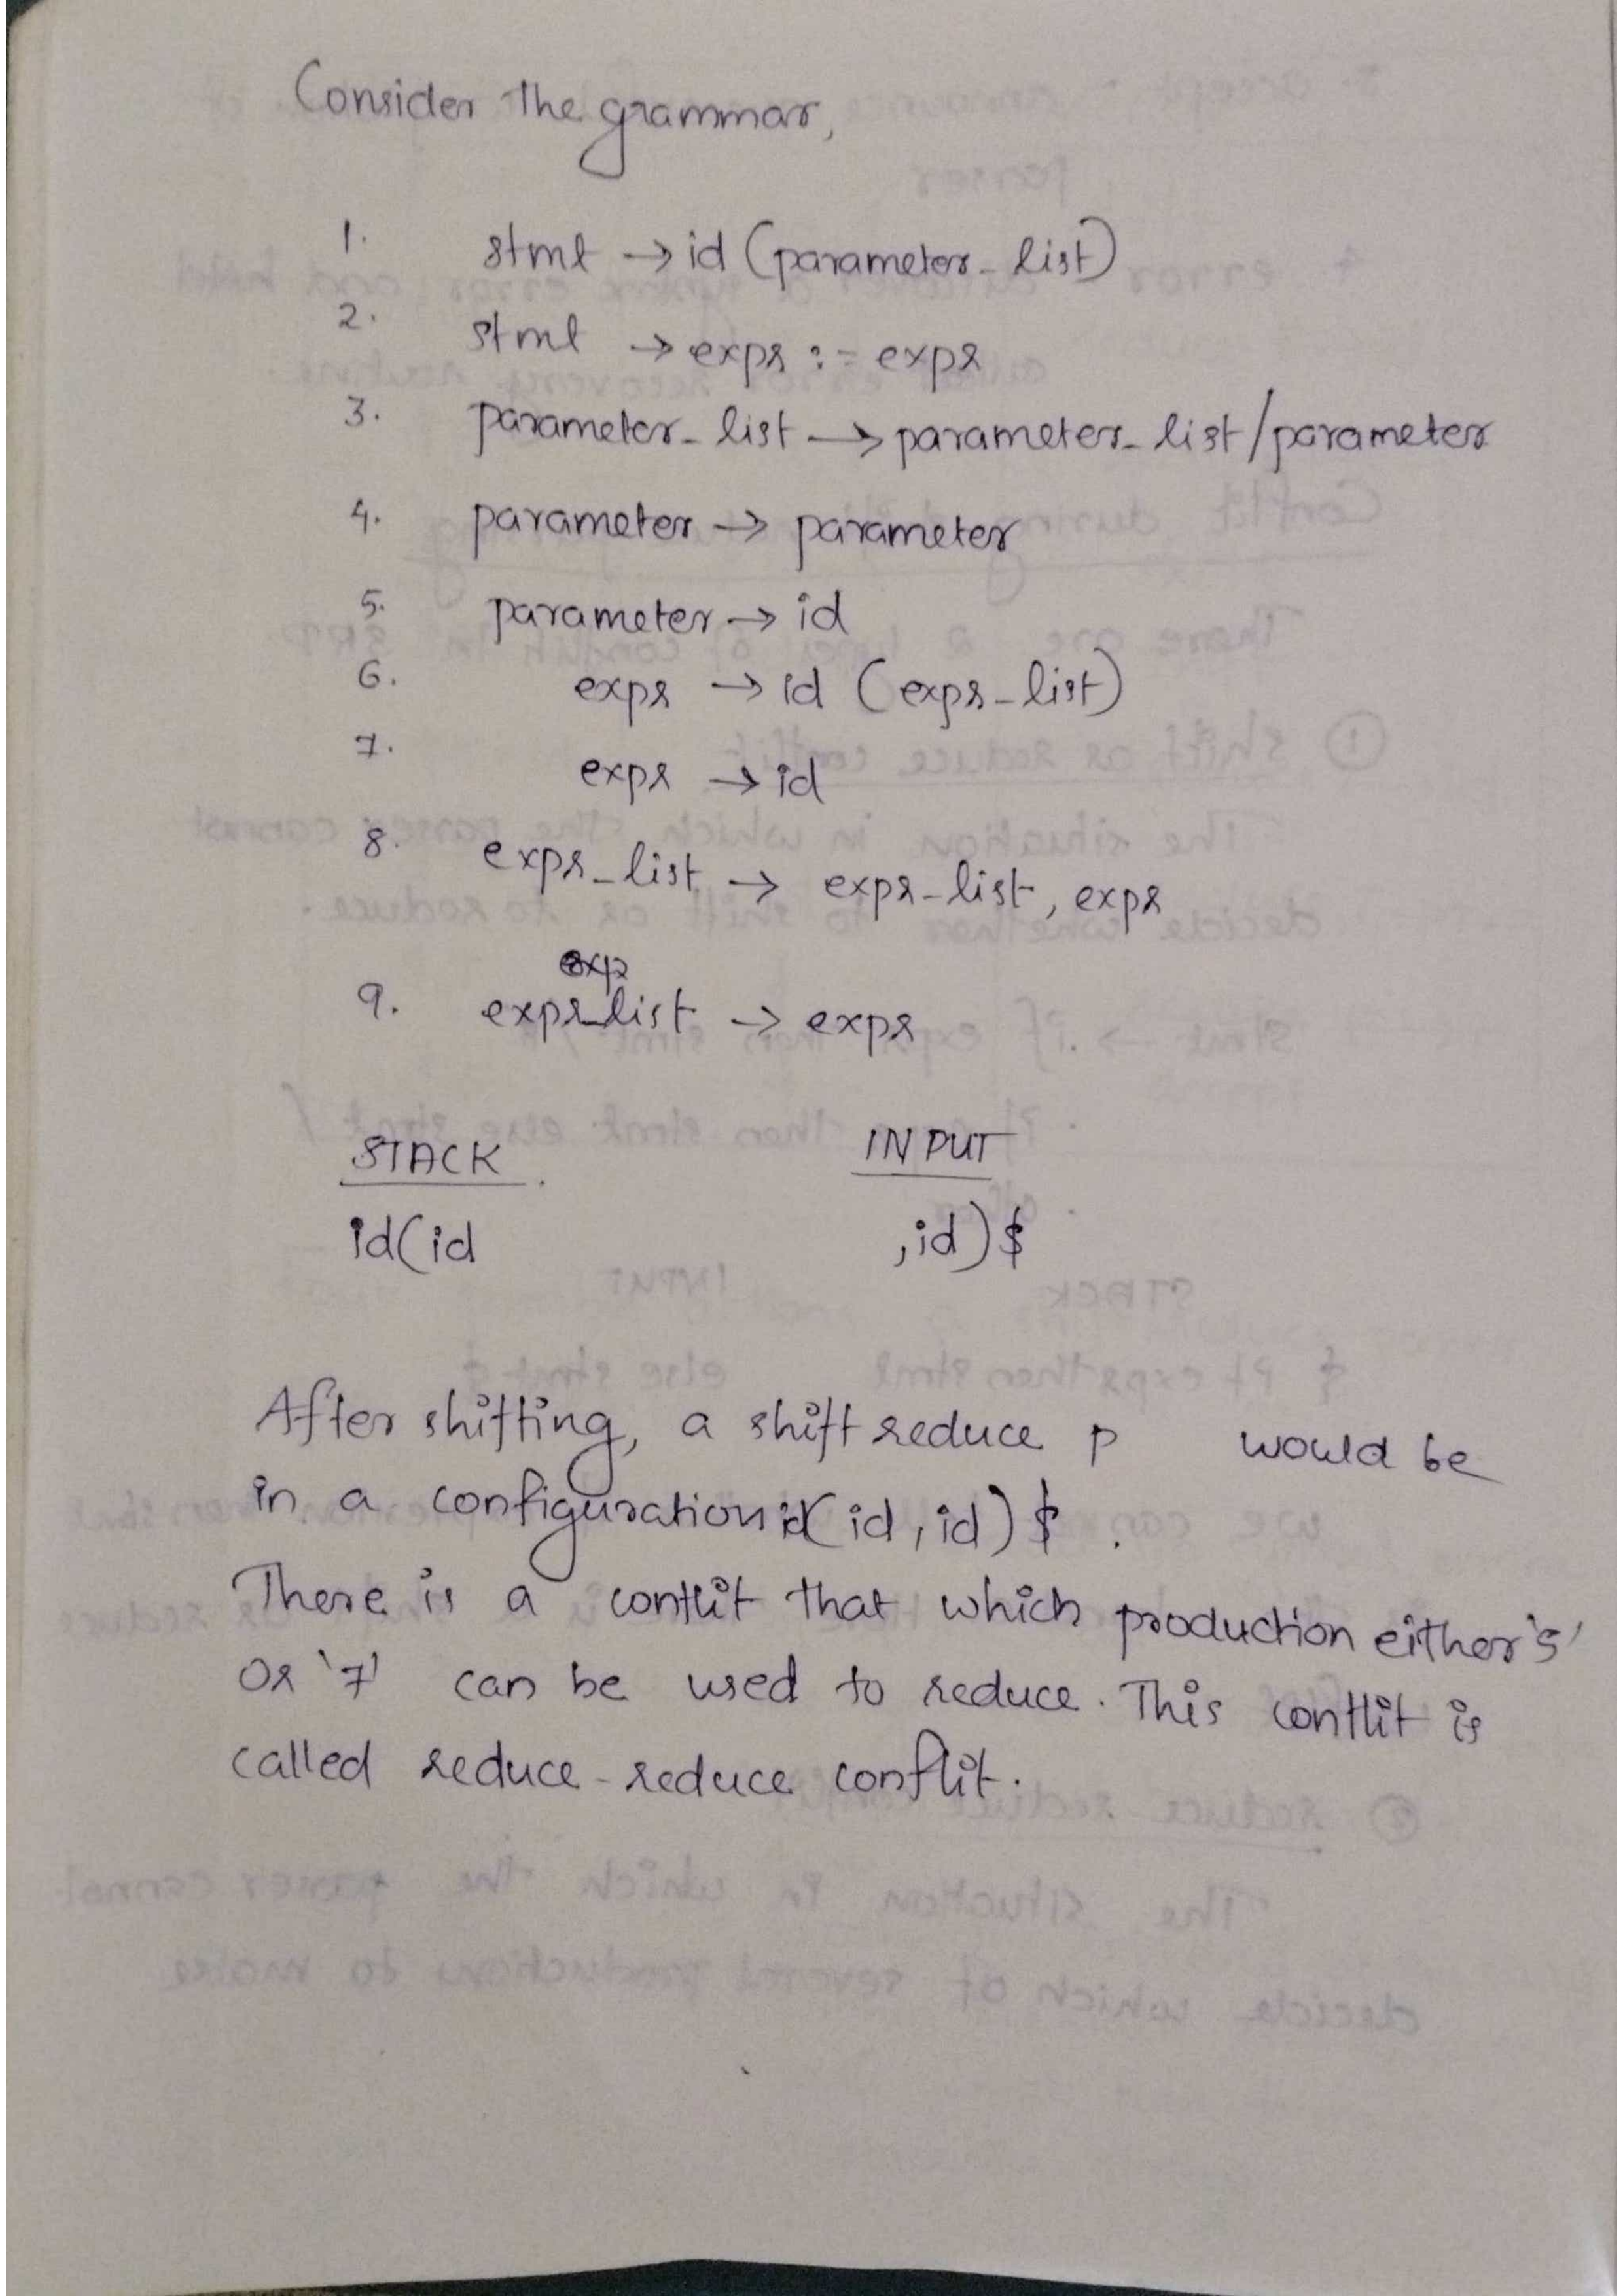 Consider the grammar,
1. stmt → id (parameter_list)
2. stmt → expr := expr
3. parameter_list → parameter_list/parameter
4. parameter → parameter
5. parameter → id
6. expr → id (expr_list)
7. expr → id
8. expr_list → expr-list, expr
exp
9. expr_list → expr
STACK INPUT
id(id ,id)$
After shifting, a shift reduce p would be
in a configuration id(id, id)$.
There is a contlit that which production either '5'
or '7' can be used to reduce. This contlit is
called reduce-reduce conflit.